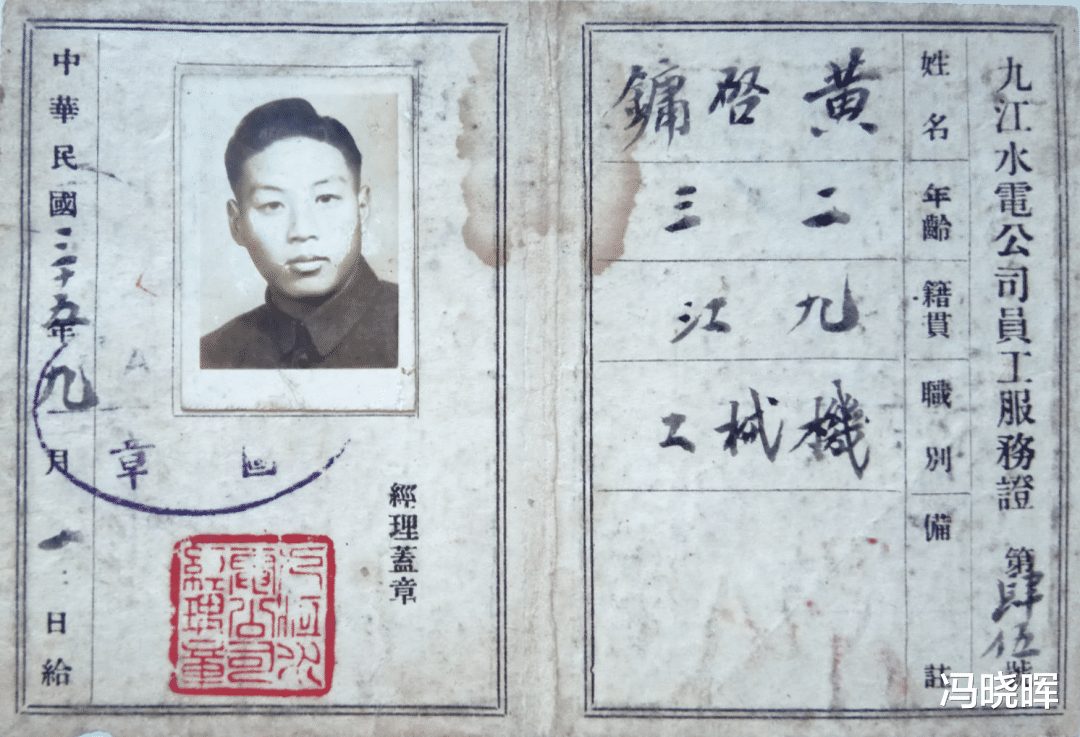 九江水電公司員工服務證 第肆伍號
姓名 黃啓鏞
年齡 二三
籍貫 九江
職別 機械工
備註
經理蓋章
九江水電公司經理章
章
中華民國三十五年九月一日給
冯晓晖